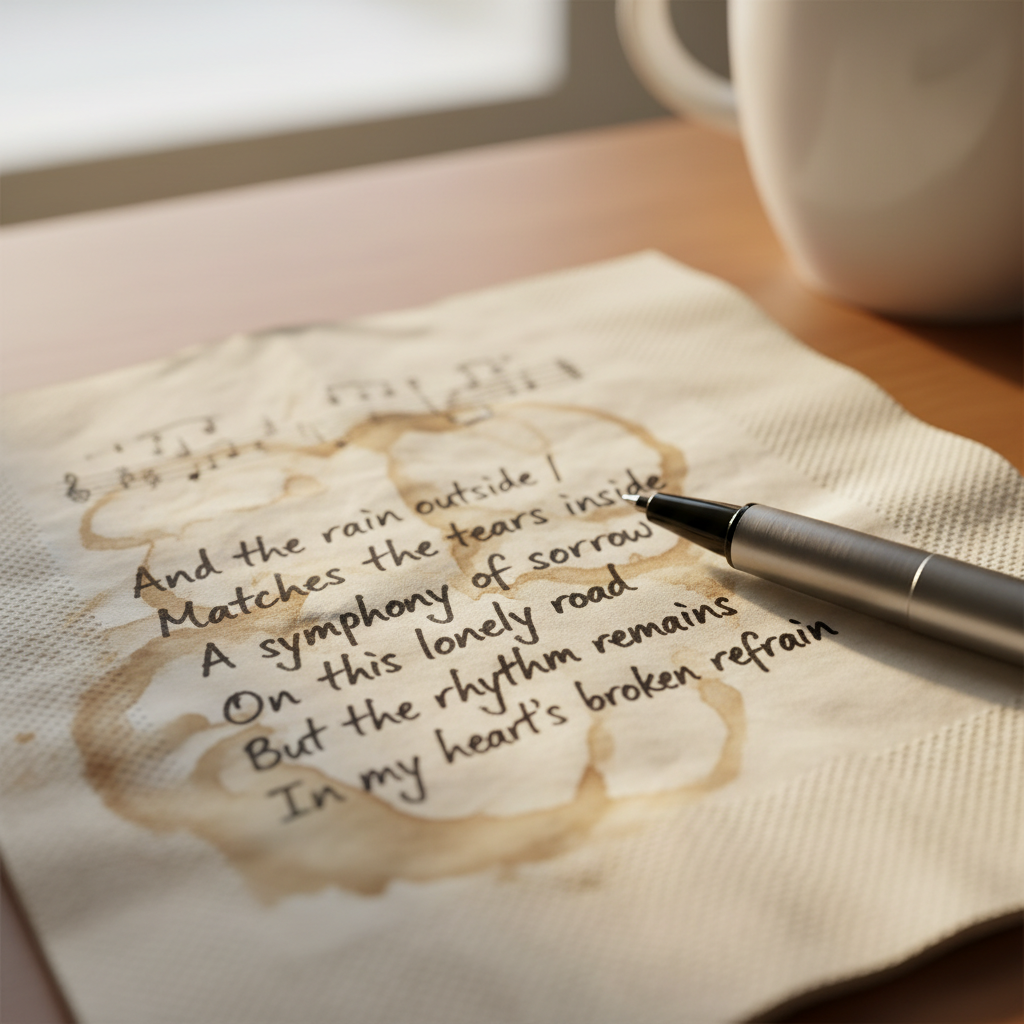 And the rain outside /
Matches the tears inside
A symphony of sorrow
On this lonely road
But the rhythm remains
In my heart's broken refrain